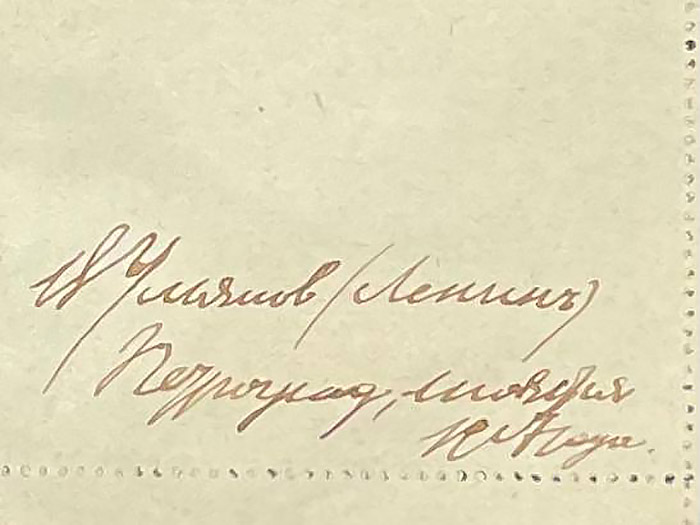 В Ульянов (Ленинъ)
Петроград, ноября
года.